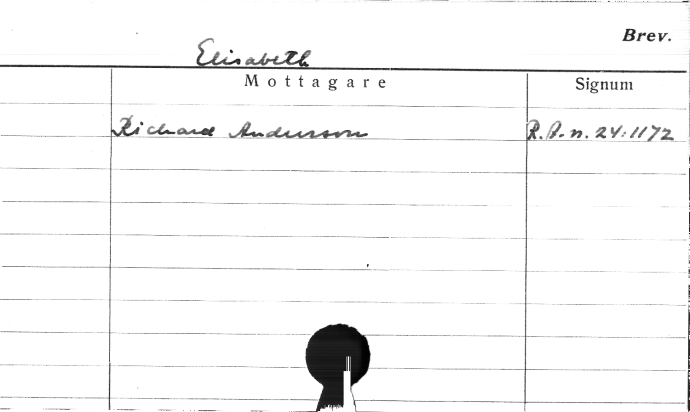 Brev.
Elisabeth
Mottagare Signum
Richard Andersson R.A.n. 24:1172